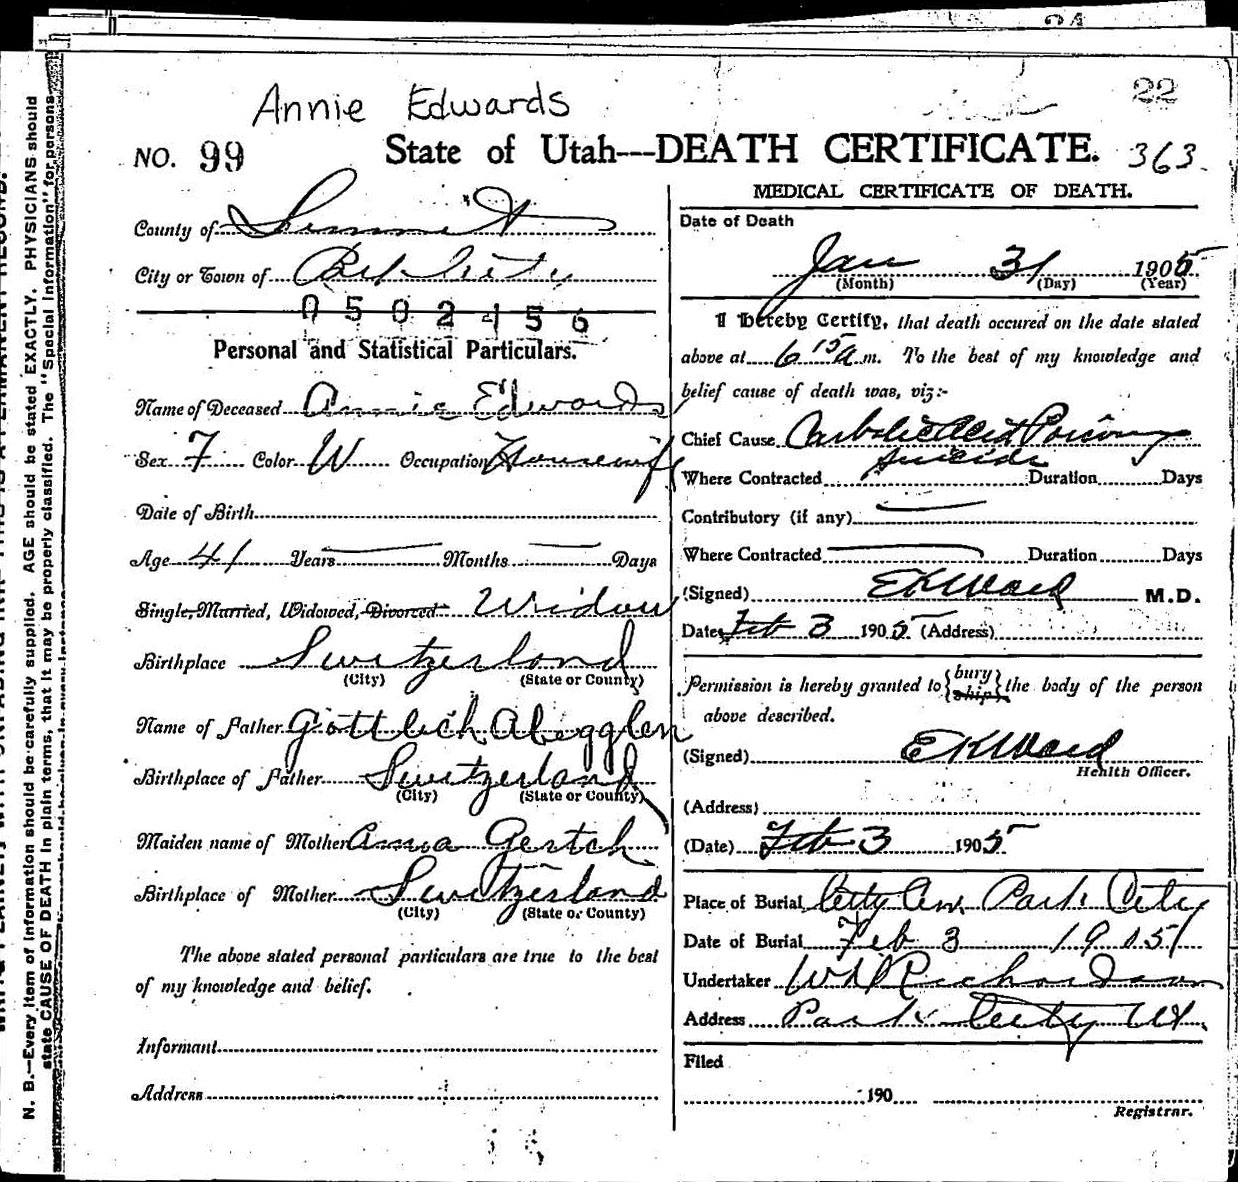 22
Annie Edwards
NO. 99 State of Utah---DEATH CERTIFICATE. 363.
County of Summit
City or Town of Park City
0502456
Personal and Statistical Particulars.
Name of Deceased Annie Edwards
Sex F Color W Occupation Housewife
Date of Birth
Age 41 Years Months Days
Single, Married, Widowed, Divorced Widow
Birthplace Switzerland
(City) (State or County)
Name of Father Gottlieh Abegglen
Birthplace of Father Switzerland
(City) (State or County)
Maiden name of Mother Anna Gertch
Birthplace of Mother Switzerland
(City) (State or County)
The above stated personal particulars are true to the best
of my knowledge and belief.
Informant
Address
MEDICAL CERTIFICATE OF DEATH.
Date of Death
Jan 31 1905
(Month) (Day) (Year)
I hereby Certify, that death occured on the date stated
above at 6 15 a m. To the best of my knowledge and
belief cause of death was, viz:-
Chief Cause Carbolic Acid Poisoning
suicide
Where Contracted Duration Days
Contributory (if any)
Where Contracted Duration Days
(Signed) E K Ward M.D.
Date Feb 3 1905 (Address)
Permission is hereby granted to {bury ship} the body of the person
above described.
(Signed) E K Ward
Health Officer.
(Address)
(Date) Feb 3 1905
Place of Burial City Cem. Park City
Date of Burial Feb 3 1905
Undertaker W Richardson
Address Park City Ut.
Filed
190
Registrar.
N. B.—Every item of information should be carefully supplied. AGE should be stated EXACTLY. PHYSICIANS should
state CAUSE OF DEATH in plain terms, that it may be properly classified. The "Special Information" for persons